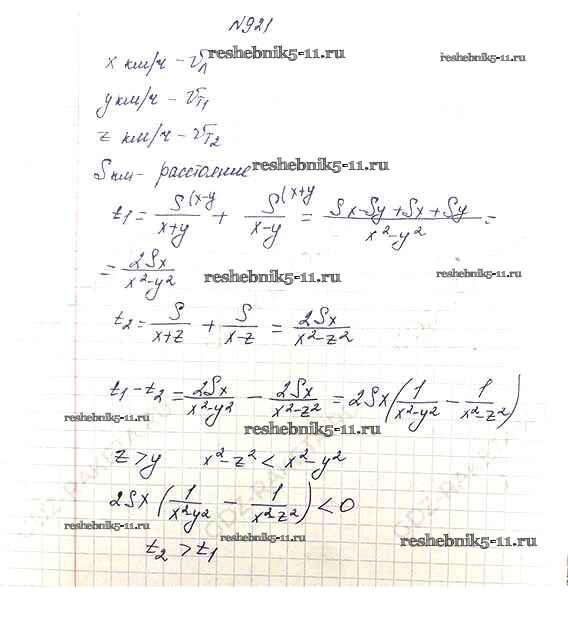 N921
reshebnik5-11.ru reshebnik5-11.ru
x км/ч - Vл
y км/ч - Vт1
z км/ч - Vт2
reshebnik5-11.ru
S км - расстояние reshebnik5-11.ru
t1 = S(x-y / x+y + S(x+y / x-y = Sx-Sy+Sx+Sy / x²-y² =
= 2Sx / x²-y²
reshebnik5-11.ru reshebnik5-11.ru
t2 = S / x+z + S / x-z = 2Sx / x²-z²
t1-t2 = 2Sx / x²-y² - 2Sx / x²-z² = 2Sx(1 / x²-y² - 1 / x²-z²)
reshebnik5-11.ru reshebnik5-11.ru
z>y x²-z² < x²-y²
2Sx(1 / x²y² - 1 / x²z²) < 0
reshebnik5-11.ru reshebnik5-11.ru
t2 > t1 reshebnik5-11.ru